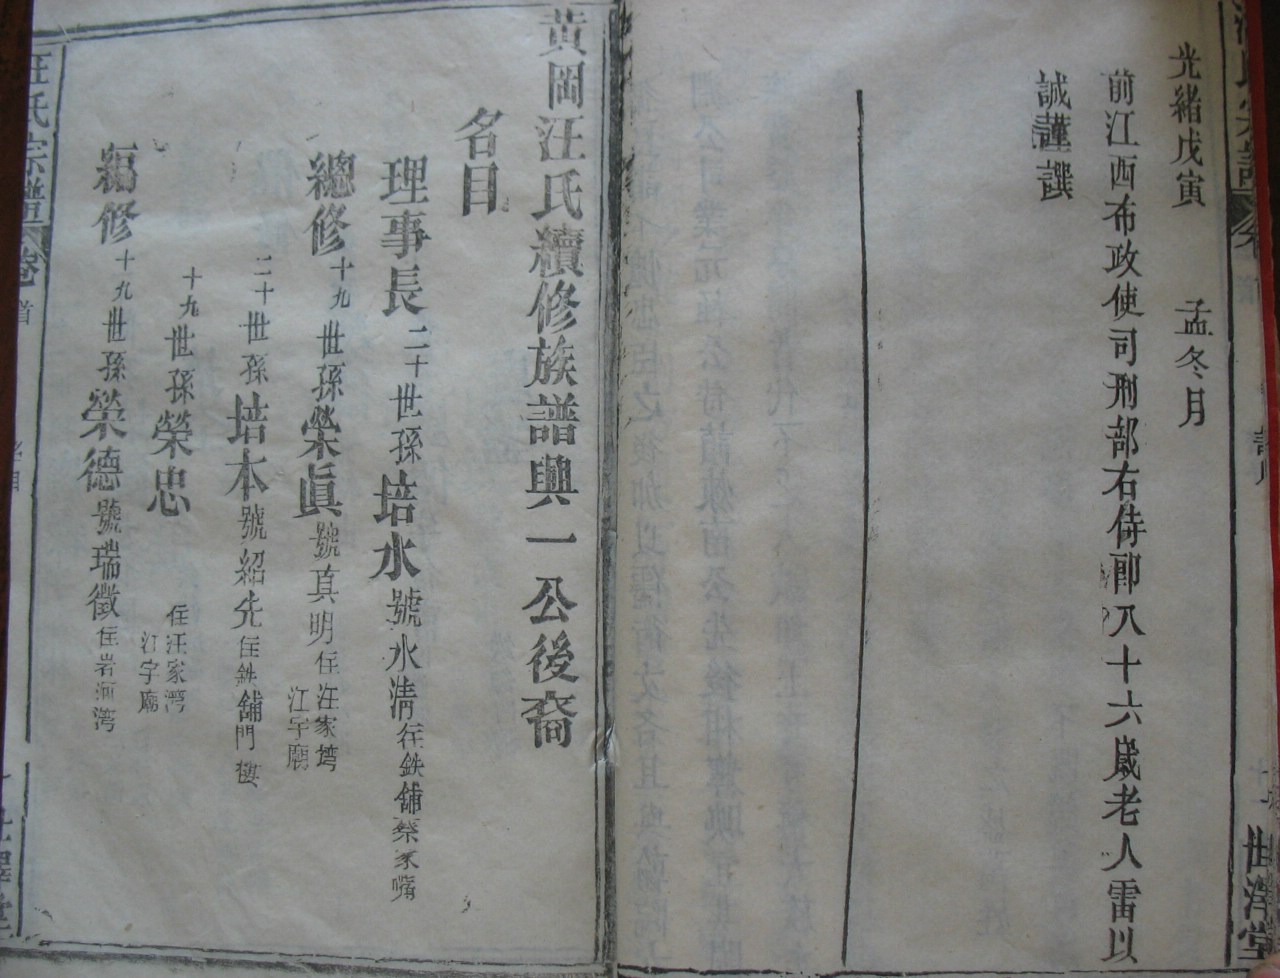 世澤堂
光緒戊寅 孟冬月
前江西布政使司刑部右侍郎八十六歲老人雷以
諴謹譔
黃岡汪氏續修族譜興一公後裔
名目
理事長 二十世孫 培水 號水清 住鉄舖蔡家嘴
總修 十九世孫 榮眞 號真明 住汪家塆
江字廟
二十世孫 培本 號紹先 住鉄舖門樓
十九世孫 榮忠 住汪家湾
江字廟
編修 十九世孫 榮德 號瑞徵 住岩河湾
汪氏宗譜 卷首
名目
世澤堂